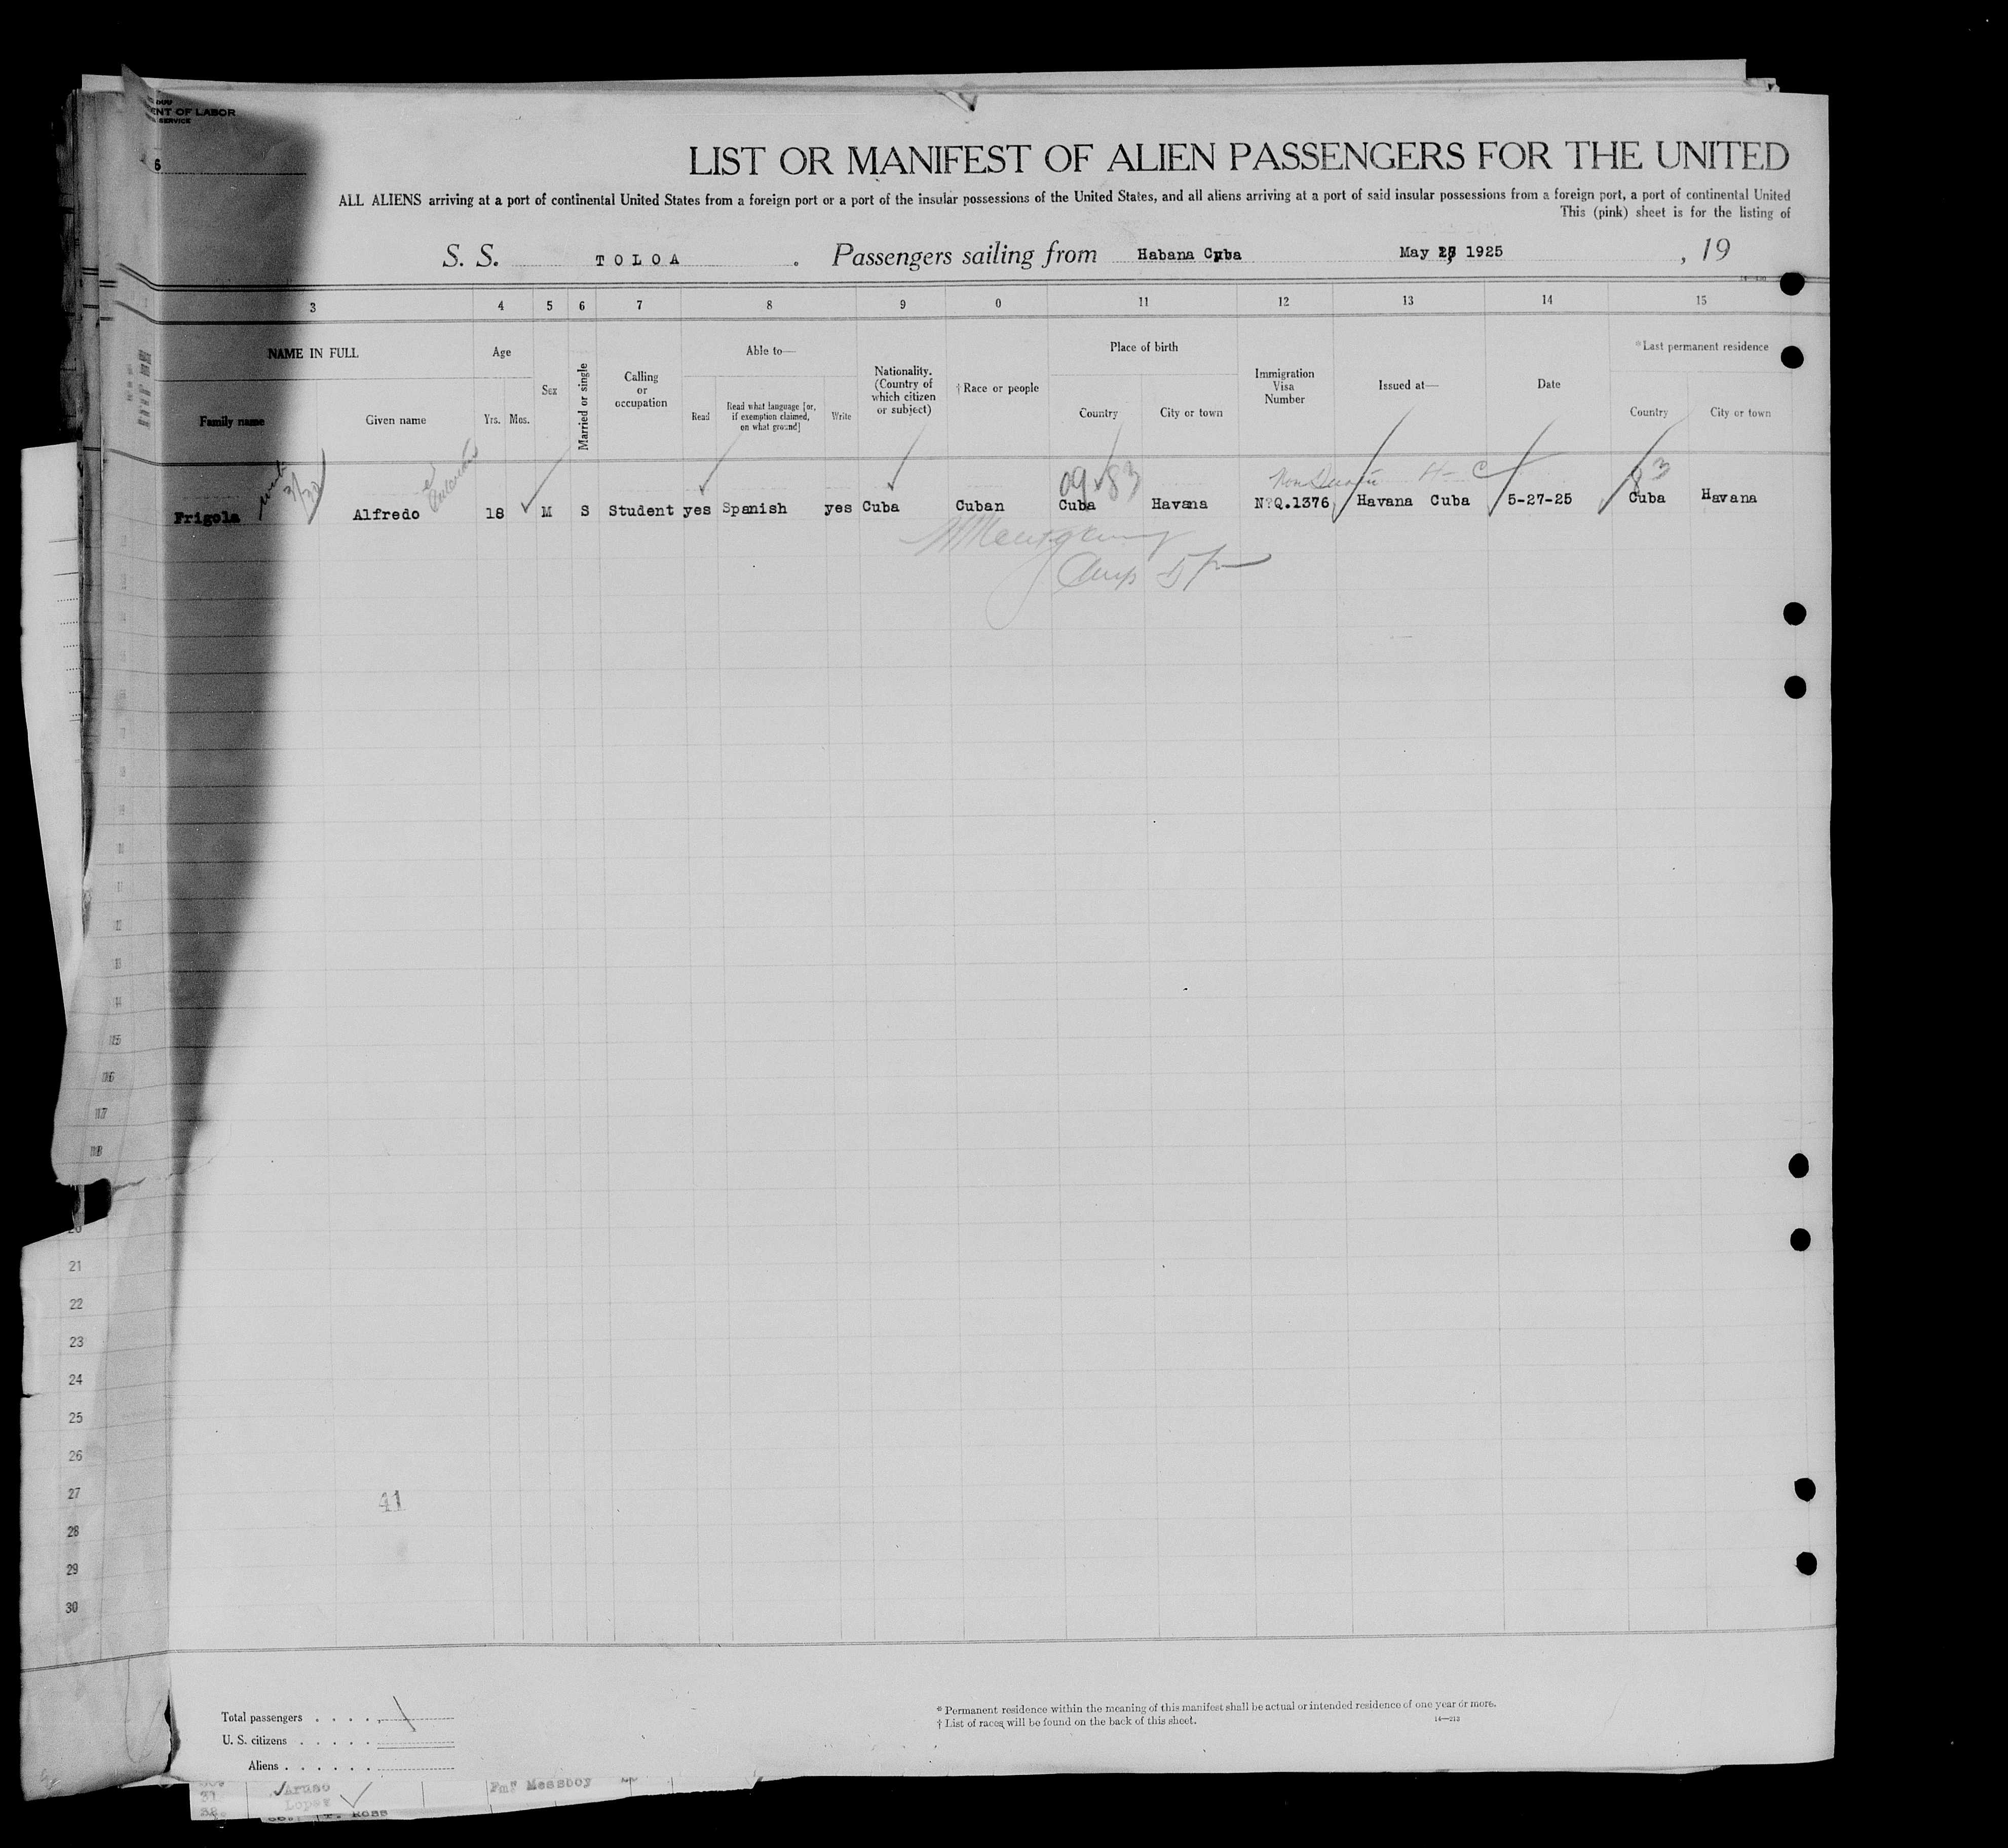 ENT OF LABOR
SERVICE
6
LIST OR MANIFEST OF ALIEN PASSENGERS FOR THE UNITED
ALL ALIENS arriving at a port of continental United States from a foreign port or a port of the insular possessions of the United States, and all aliens arriving at a port of said insular possessions from a foreign port, a port of continental United
This (pink) sheet is for the listing of
S. S. TOLOA. Passengers sailing from Habana Cuba May 1925, 19
3 4 5 6 7 8 9 0 11 12 13 14 15
NAME IN FULL
Family name
Given name
Age
Yrs. Mos.
Sex
Married or single
Calling
or
occupation
Able to—
Read
Read what language [or,
if exemption claimed,
on what ground]
Write
Nationality.
(Country of
which citizen
or subject)
† Race or people
Place of birth
Country
City or town
Immigration
Visa
Number
Issued at—
Date
*Last permanent residence
Country
City or town
09 83
H- C
83
Frigola Alfredo 18 M S Student yes Spanish yes Cuba Cuban Cuba Havana N?Q.1376 Havana Cuba 5-27-25 Cuba Havana
21
22
23
24
25
26
27
28
29
30
41
Total passengers . . . . .
U. S. citizens . . . . .
Aliens . . . . . .
* Permanent residence within the meaning of this manifest shall be actual or intended residence of one year or more.
† List of races will be found on the back of this sheet.
14—213
31 Aruso Messboy
32 Lopez
Ross